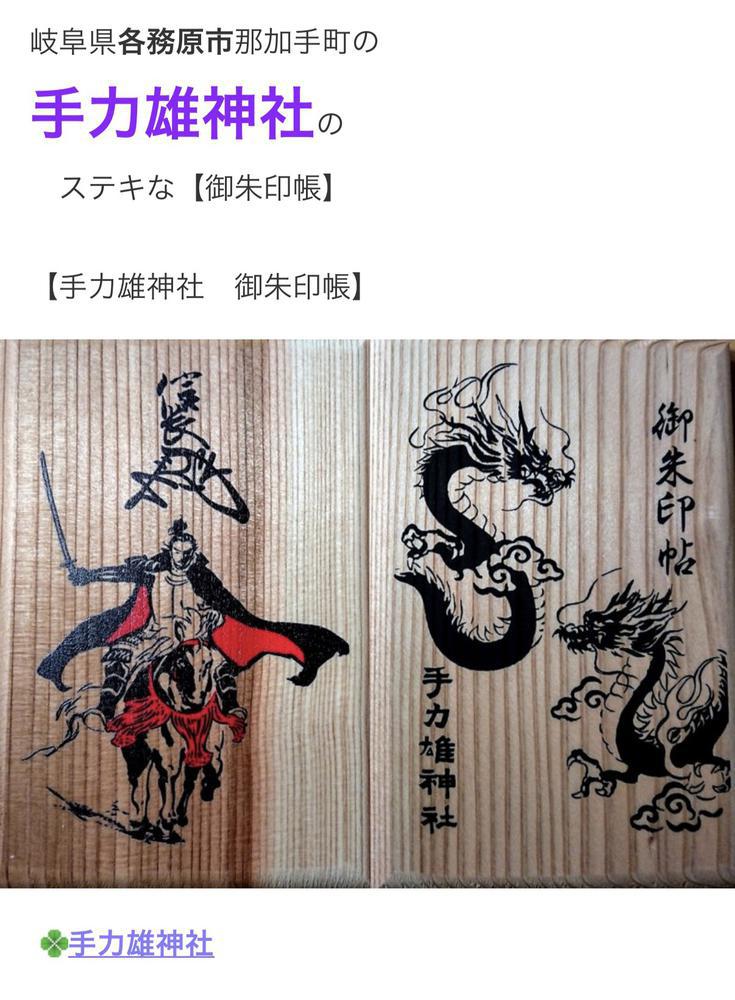 岐阜県各務原市那加手町の
手力雄神社の
ステキな【御朱印帳】
【手力雄神社　御朱印帳】
信長
御朱印帖
手力雄神社
🍀手力雄神社